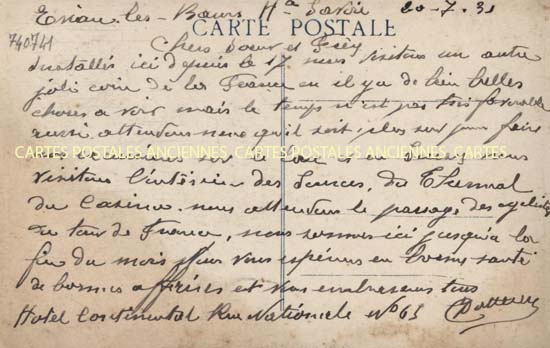 Evian-les-Bains Hte Savoie 20-7-31
CARTE POSTALE
740741
Chers Soeur et
Installés ici depuis le 17. nous visitons un autre
joli coin de la France ou il y a de bien belles
choses a voir mais le temps n'est pas très favorable
aussi attendons nous qu'il soit plus sur pour faire
CARTES POSTALES ANCIENNES CARTES POSTALES ANCIENNES CARTES POSTALES
sur le Lac et en nous
visitons l'intérieur des Sources, du Thermal
du Casino. nous attendons le passage des cyclistes
du tour de France, nous sommes ici jusqu'a la
fin du mois vous espérons en bonne santé
de bonnes affaires et vous embrassons tous
Hotel Continental Rue Nationale No 63